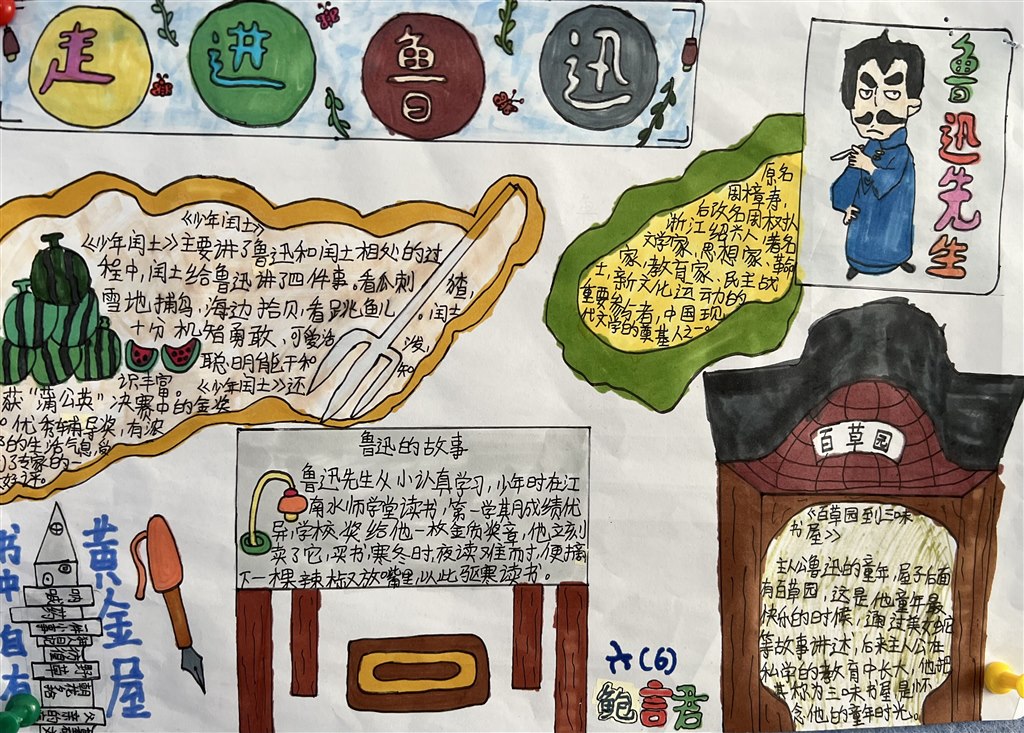 走进鲁迅
鲁迅先生
原名
周樟寿,
后改名周树人
浙江绍兴人,著名
文学家、思想家、革命
家、教育家、民主战
士,新文化运动的
重要参与者,中国现
代文学的奠基人之一。
《少年闰土》
《少年闰土》主要讲了鲁迅和闰土相处的过
程中,闰土给鲁迅讲了四件事。看瓜刺猹,
雪地捕鸟,海边拾贝,看跳鱼儿。闰土
十分机智勇敢,可爱活泼,
聪明能干和知
识丰富。《少年闰土》还
获“蒲公英”决赛中的金奖
。优秀辅导奖,有浓
的生活气息,受
了专家的一
好评。
鲁迅的故事
鲁迅先生从小认真学习,少年时在江
南水师学堂读书,第一学期成绩优
异,学校奖给他一枚金质奖章,他立刻
卖了它,买书,寒冬时,夜读难耐时,便摘
下一棵辣椒放嘴里,以此驱寒读书。
百草园
《百草园到三味
书屋》
主人公鲁迅的童年,屋子后面
有百草园,这是他童年最
快乐的时候,通过美女蛇
等故事讲述,后来主人公在
私学的教育中长大,他把
其称为三味书屋,是怀
念他的童年时光。
书中自有
黄金屋
呐喊
药
故事
一件小事
狂人日记
彷徨
野草
朝花夕拾
六(6)
鲍言君